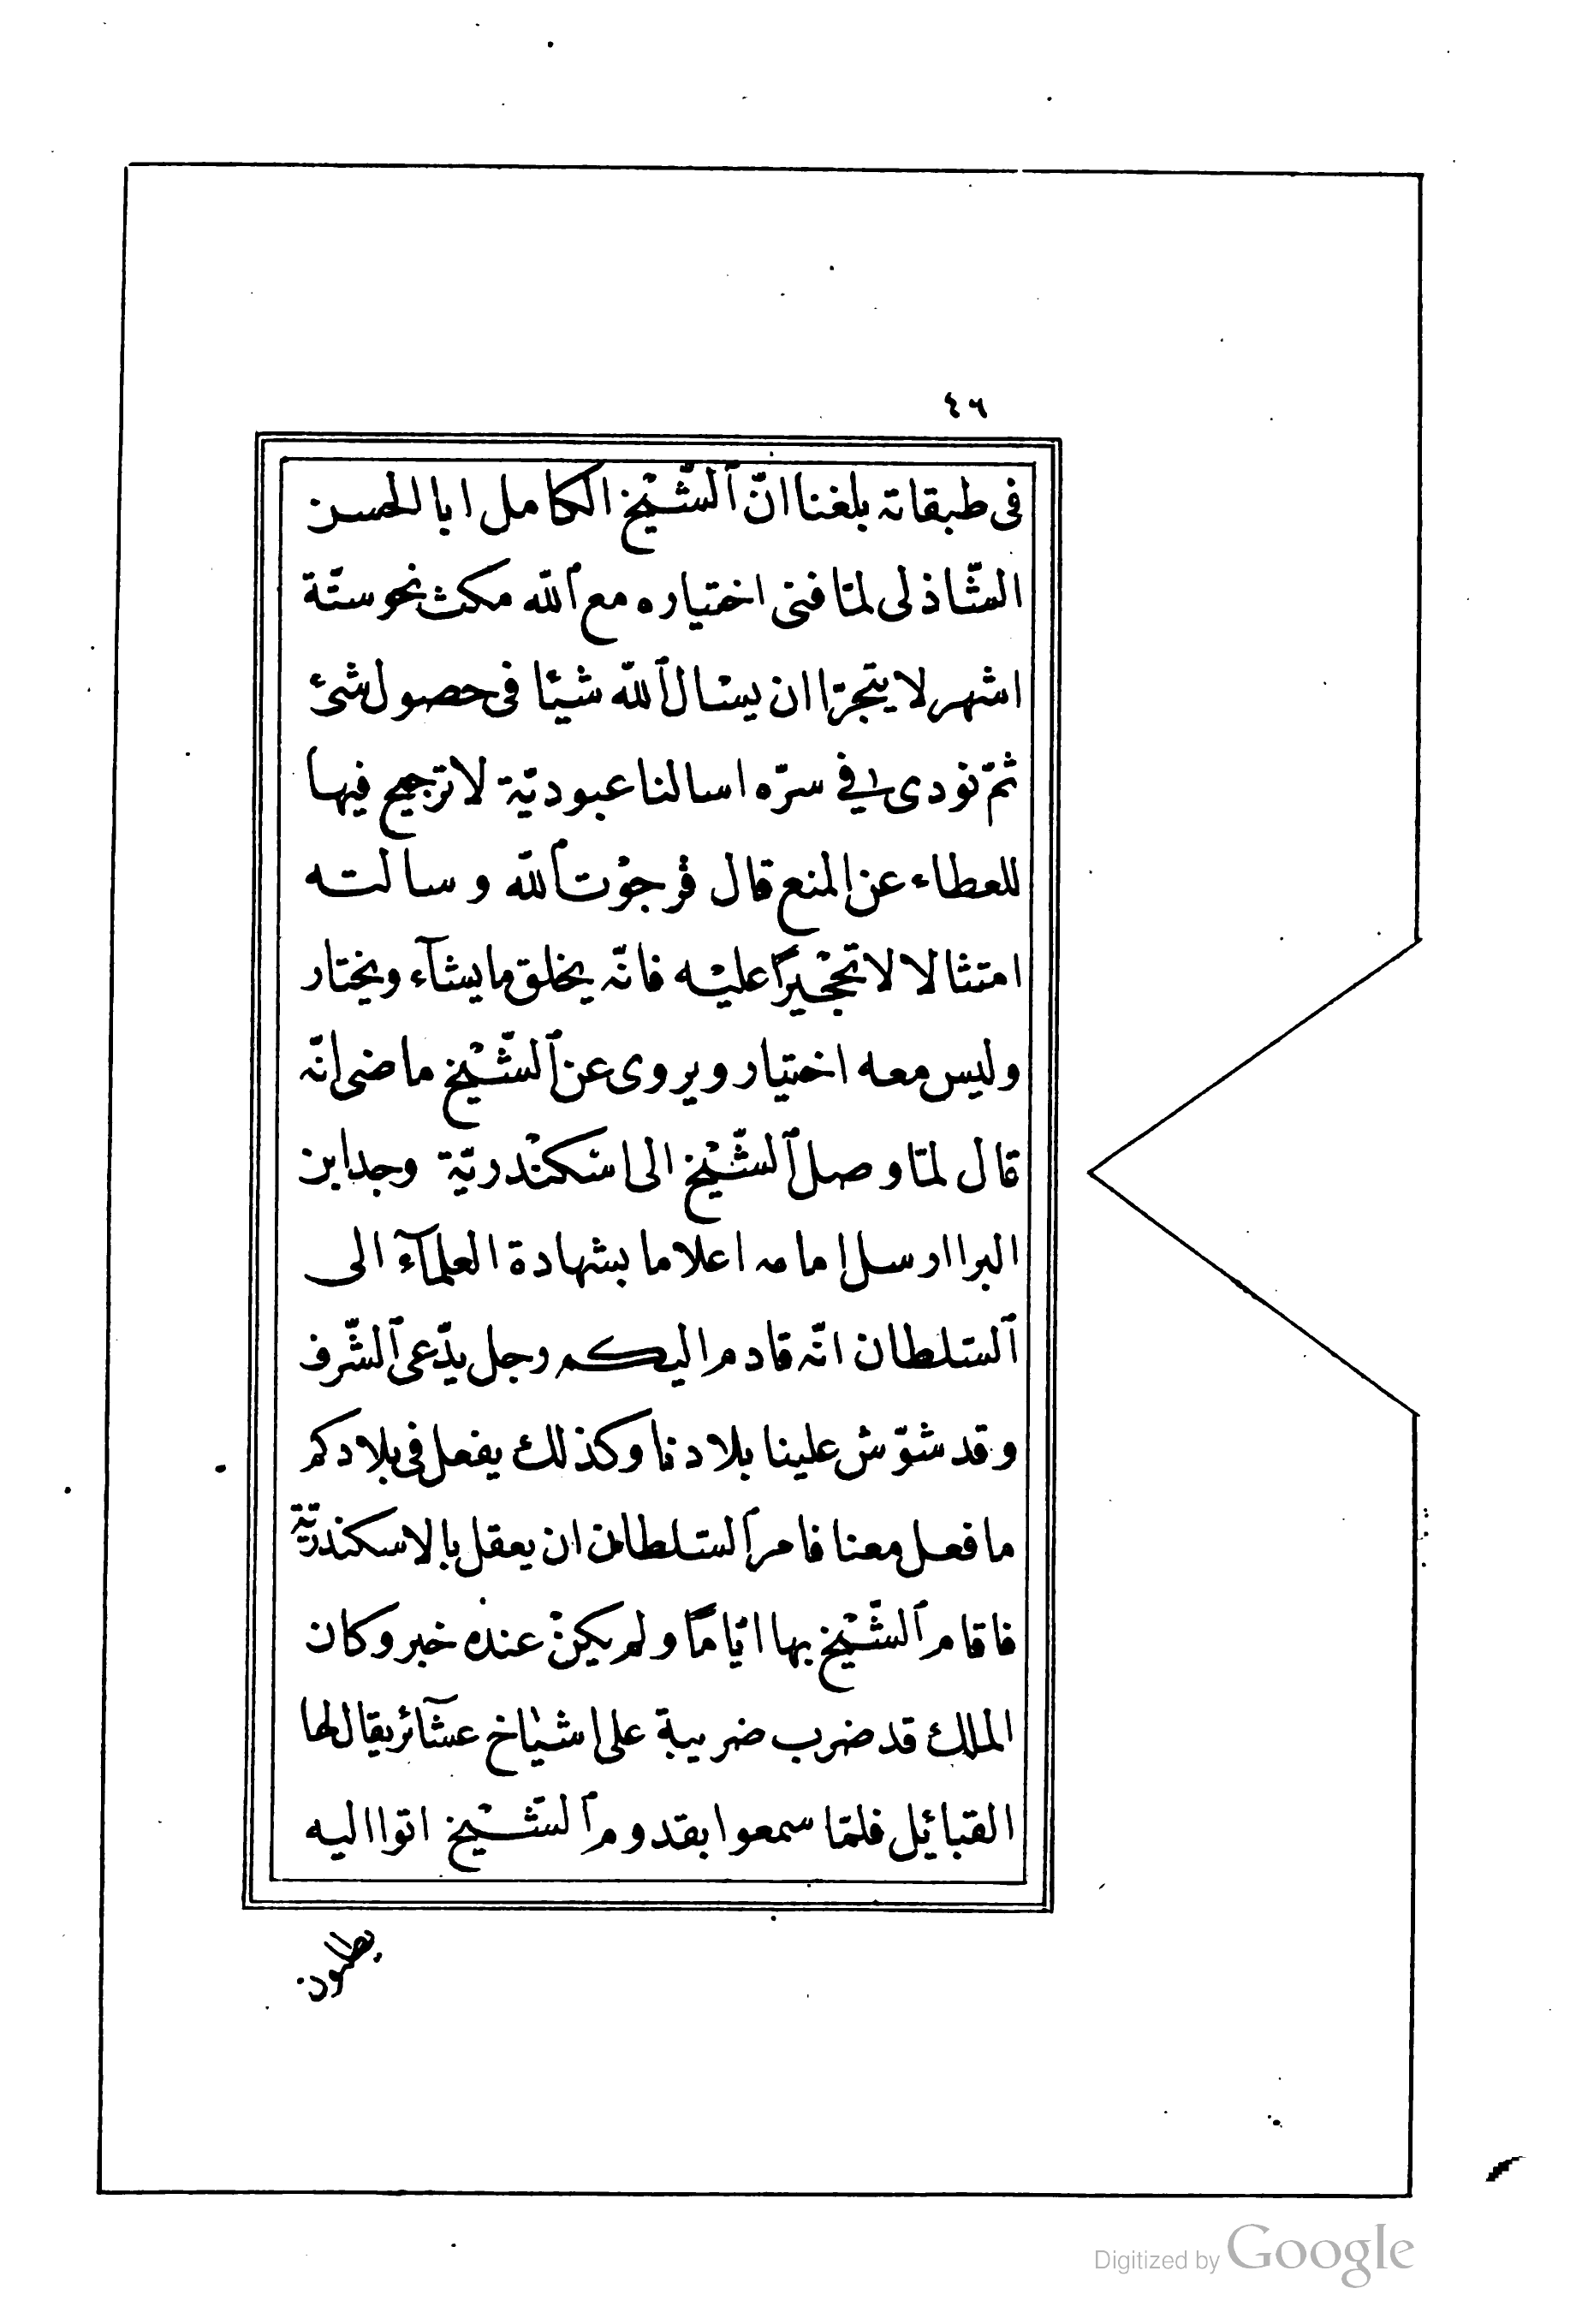 ٤٦
فى طبقاته بلغنا انّ ٱلشّيْخ الكامل ابا الحسن
الشّاذلى لمّا فنى اختياره مع ٱللّه مكث نحو ستّة
اشهر لا يتجرّا ان يسْال ٱللّه شيئا فى حصول شىء
ثمّ نودى فى سرّه اسالنا عبوديّة لا ترجيح فيها
للعطاء عن المنع قال فرجوْت ٱللّه وسالته
امتثالا لا تحْجيرًا عليْه فانّه يخلق ما يشآء ويختار
وليس معه اختيار ويروى عن ٱلشّيْخ ماضى انّه
قال لمّا وصل ٱلشّيْخ الى اسْكنْدريّة وجد ابن
البرا ارسل امامه اعلاما بشهادة العلمآء الى
ٱلسّلطان انّه قادم اليكم رجل يدّعى ٱلشّرف
وقد شوّش علينا بلادنا وكذلك يفعل فى بلادكم
ما فعل معنا فامر ٱلسّلطان ان يعقل بالاسكندريّة
فاقام ٱلشّيْخ بها ايّامًا ولم يكنْ عنده خبر وكان
الملك قد ضرب ضريبة على اشيْاخ عشآئر يقال لها
القبائل فلمّا سمعوا بقدوم ٱلشّيْخ اتوا اليه
يطلبون
Digitized by Google